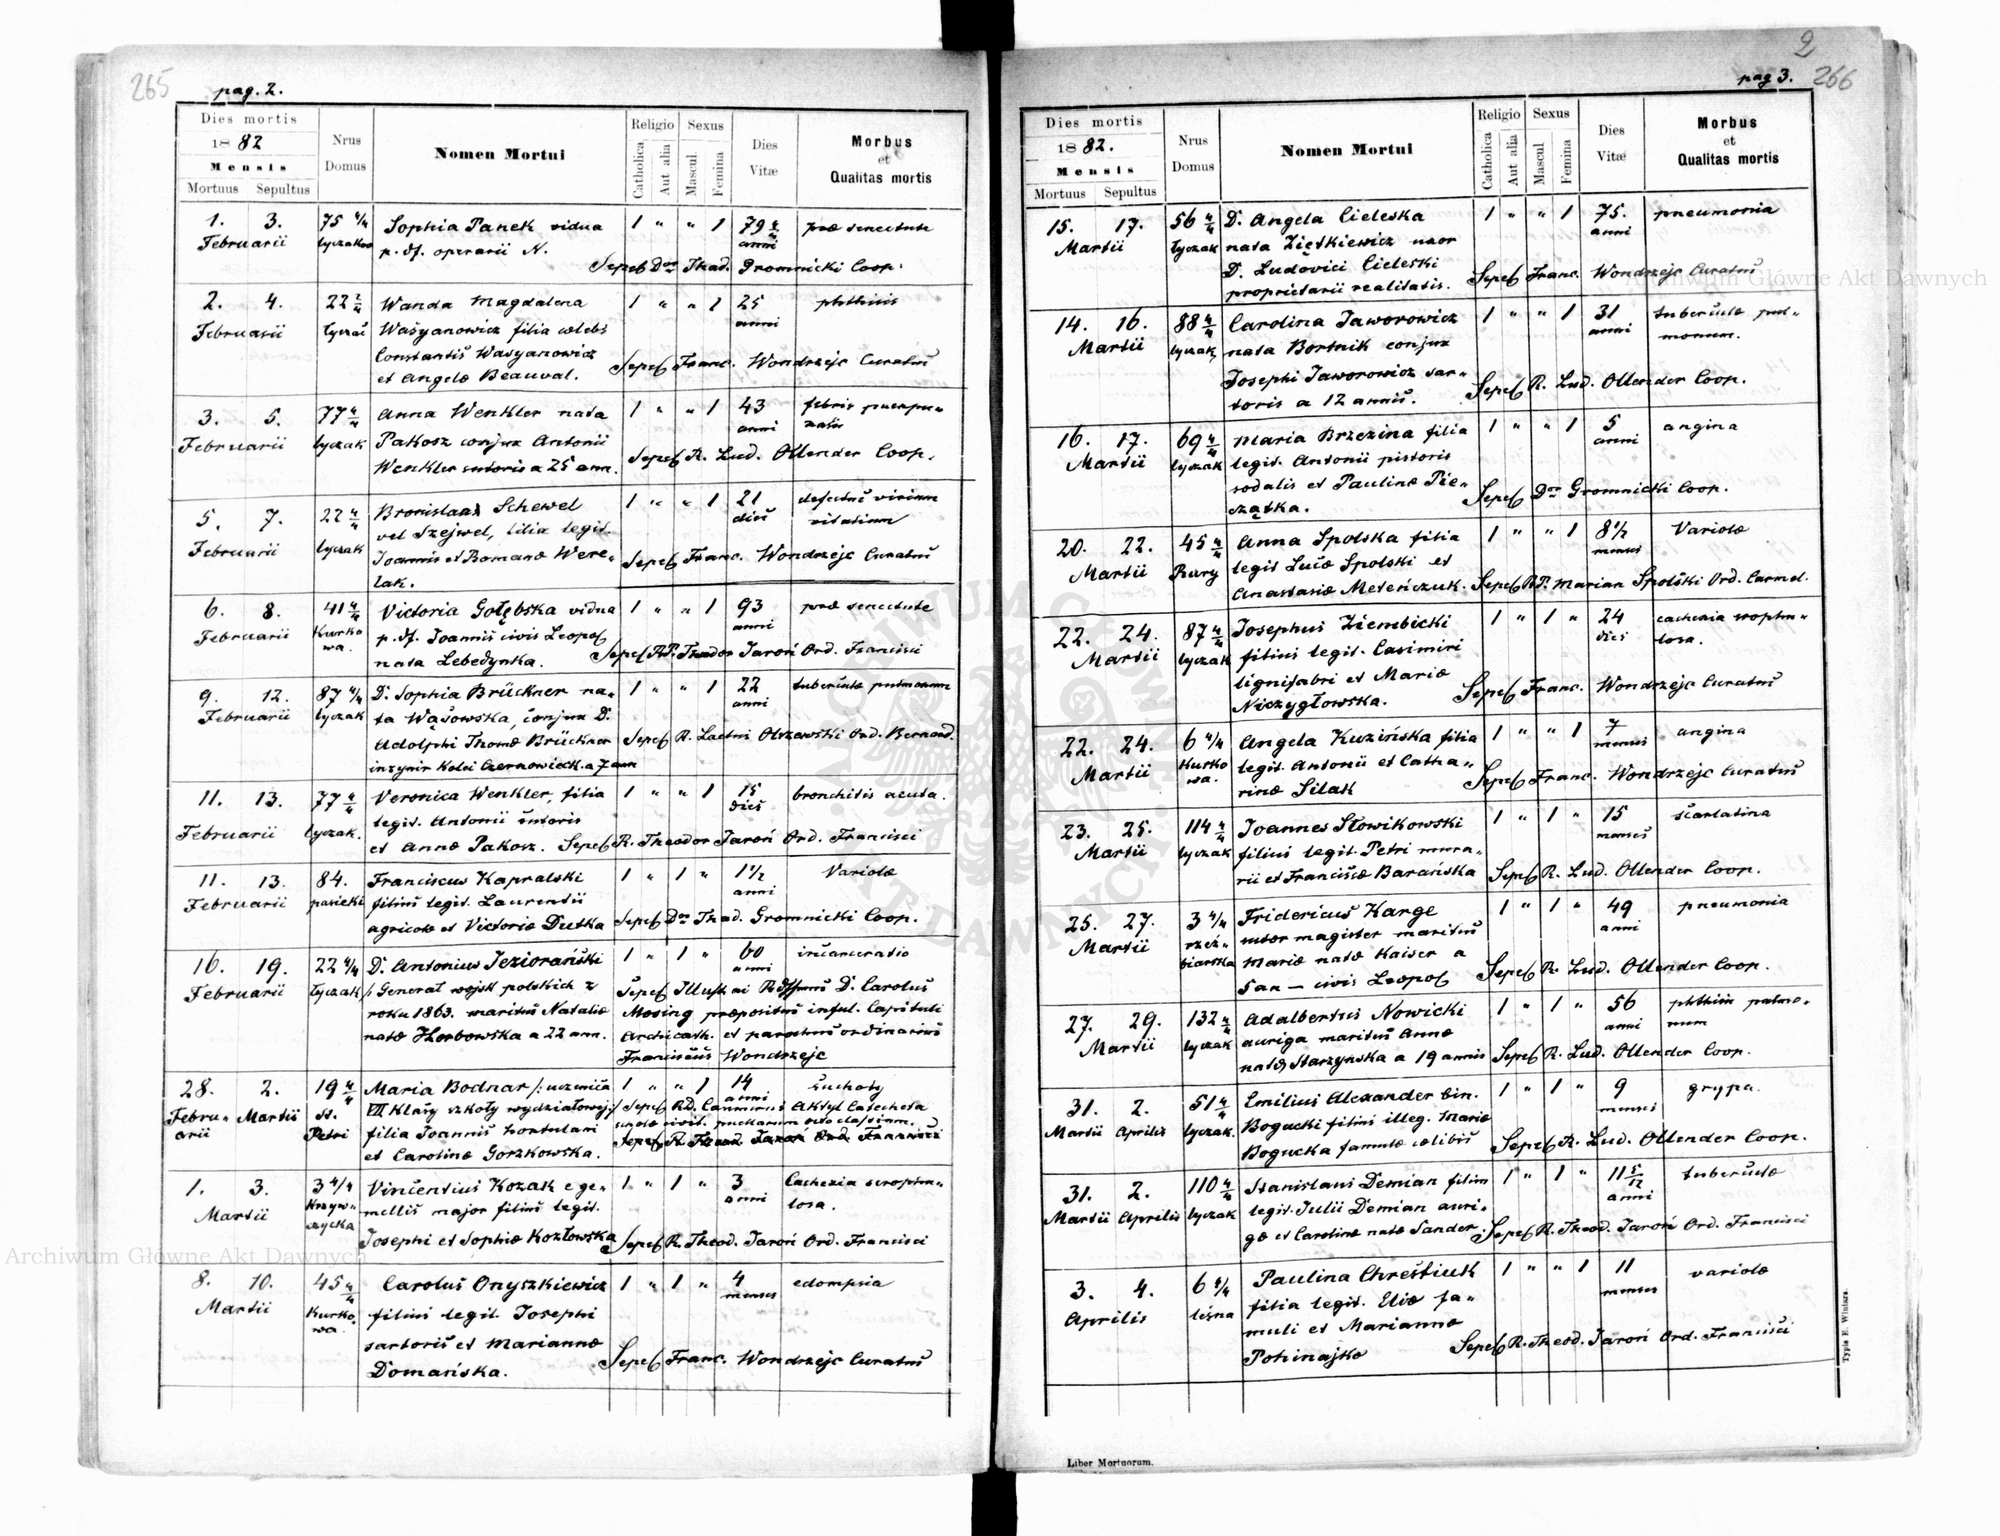 265
pag. 2.
Dies mortis
1882
Mensis
Mortuus Sepultus
Nrus Domus
Nomen Mortui
Religio
Catholica
Aut alia
Sexus
Mascul
Femina
Dies Vitæ
Morbus
et
Qualitas mortis
1. 3. 75 4/4 Sophia Panek vidua 1 " " 1 79 præ senectute
Februarii p. df. operarii N. anni
Sepel Dnus Thad. Gromnicki Coop.
2. 4. 22 Wanda Magdalena 1 " " 1 25 phthisis
Februarii Wasyanowicz filia cælebs anni
Constantis Wasyanowicz
et Angelæ Beauval. Sepel Franc. Wondrzejc Curatus
3. 5. 77 4/4 Anna Wenkler nata 1 " " 1 43 febris puerpe-
Februarii łyczak Pakosz conjux Antonii anni
Wenkler sutoris a 25 ann. Sepel R. Lud. Ollender Coop.
5. 7. 22 4/4 Bronislaa Schewel 1 " " 1 21 defectus virium
Februarii łyczak vel Szejwel, filia legit. dies vitalium
Joannis et Romanæ Were-
lak. Sepel Franc. Wondrzejc Curatus
6. 8. 41 4/4 Victoria Gołębska vidua 1 " " 1 93 præ senectute
Februarii Kurkowa p. df. Joannis civis Leopol anni
nata Lebedynka. Sepel RP. Theodor Jaroń Ord. Francisci
9. 12. 87 4/4 D. Sophia Brückner na- 1 " " 1 22 tuberculæ pulmonum
Februarii łyczak ta Wąsowska, conjux D. anni
Adolphi Thomæ Brückner Sepel R. Laetus Olszewski Ord. Bernard.
inżynir Kolei Czernowieck. a 7 ann
11. 13. 77 4/4 Veronica Wenkler, filia 1 " " 1 15 bronchitis acuta.
Februarii łyczak. legit. Antonii sutoris dies
et Annæ Pakosz. Sepel R. Theodor Jaroń Ord. Francisci
11. 13. 84. Franciscus Kapralski 1 " 1 " 1 1/2 Variolæ
Februarii pasieki filius legit. Laurentii anni
agricolæ et Victoriæ Dutka Sepel Dnus Thad. Gromnicki Coop.
16. 19. 22 4/4 D. Antonius Jeziorański 1 " 1 " 60 incarceratio
Februarii łyczak /: Generał wojsk polskich z anni
roku 1863. maritus Nataliæ
natæ Horbowska a 22 ann.
Sepel D. Carolus
Mosing præpositus inful. Capituli
Archicath. et parochus ordinarius
Franciscus Wondrzejc
28. 2. 19 4/4 Maria Bodnar /: uczenica 1 " " 1 14 Suchoty
Februarii Martii st. Petri VII klasy szkoły wydziałowej:/ anni
filia Joannis hortulani
et Carolinæ Gorzkowska.
Sepel RD. Casimirus Aktyl Catecheta
Sepel R. Theod. Jaroń Ord. Francisci
1. 3. 3 4/4 Vincentius Kozak e ge- 1 " 1 " 3 Cachexia scrophu-
Martii Krzywczycka mellis major filius legit. anni losa.
Josephi et Sophiæ Kozłowska Sepel R. Theod. Jaroń Ord. Francisci
8. 10. 45 4/4 Carolus Onyszkiewicz 1 " 1 " 4 eclampsia
Martii Kurkowa filius legit. Josephi menses
sartoris et Mariannæ
Domańska. Sepel Franc. Wondrzejc Curatus
2
pag 3. 266
Dies mortis
1882.
Mensis
Mortuus Sepultus
Nrus Domus
Nomen Mortui
Religio
Catholica
Aut alia
Sexus
Mascul
Femina
Dies Vitæ
Morbus
et
Qualitas mortis
15. 17. 56 4/4 D. Angela Cieleska 1 " " 1 75. pneumonia
Martii łyczak nata Ziętkiewicz uxor anni
D. Ludovici Cieleski
proprietarii realitatis. Sepel Franc. Wondrzejc Curatus
14. 16. 88 4/4 Carolina Jaworowicz 1 " " 1 31 tuberculæ pul-
Martii łyczak nata Bortnik conjux anni monum.
Josephi Jaworowicz sar-
toris a 12 annis. Sepel R. Lud. Ollender Coop.
16. 17. 69 4/4 Maria Brzezina filia 1 " " 1 5 angina
Martii łyczak legit. Antonii pistoris anni
sodalis et Paulinæ Pie-
czątka. Sepel Dnus Gromnicki Coop.
20. 22. 45 4/4 Anna Spolska filia 1 " " 1 8 1/2 Variolæ
Martii Rury legit Lucæ Spolski et menses
Anastasiæ Meteńczuk. Sepel RP. Marian Spolski Ord. Carmel.
22. 24. 87 4/4 Josephus Ziembicki 1 " 1 " 24 cachexia scophu-
Martii łyczak filius legit. Casimiri dies losa.
lignifabri et Mariæ
Niezygłowska. Sepel Franc. Wondrzejc Curatus
22. 24. 6 4/4 Angela Kuzińska filia 1 " " 1 7 angina
Martii Kurkowa. legit. Antonii et Catha- menses
rinæ Silak Sepel Franc. Wondrzejc Curatus
23. 25. 114 4/4 Joannes Słowikowski 1 " 1 " 15 scarlatina
Martii łyczak filius legit. Petri mura- menses
rii et Franciscæ Barańska Sepel R. Lud. Ollender Coop.
25. 27. 3 4/4 Fridericus Karge 1 " 1 " 49 pneumonia
Martii rzeźbiarska sutor magister maritus anni
Mariæ natæ Kaiser a
5 an — civis Leopol Sepel R. Lud. Ollender Coop.
27. 29. 132 4/4 Adalbertus Nowicki 1 " 1 " 56 phthisis pulmo-
Martii łyczak auriga maritus Annæ anni num
natæ Starzynska a 19 annis Sepel R. Lud. Ollender Coop.
31. 2. 51 4/4 Emilius Alexander bin. 1 " 1 " 9 grypa.
Martii Aprilis łyczak. Bogucki filius illeg. Mariæ menses
Bogucka famulæ cælibis Sepel R. Lud. Ollender Coop.
31. 2. 110 4/4 Stanislaus Demian filius 1 " 1 " 11 5/12 tuberculæ
Martii Aprilis łyczak legit. Julii Demian auri- anni
gæ et Carolinæ natæ Sander. Sepel R. Theod. Jaroń Ord. Francisci
3. 4. 6 4/4 Paulina Chreščiuk 1 " " 1 11 variolæ
Aprilis leśna filia legit. Eliæ fa- menses
muli et Mariannæ
Pohinajko Sepel R. Theod. Jaroń Ord. Francisci
Typis E. Winiarz.
Liber Mortuorum.
Archiwum Główne Akt Dawnych
Archiwum Główne Akt Dawnych
ARCHIWUM GŁÓWNE AKT DAWNYCH